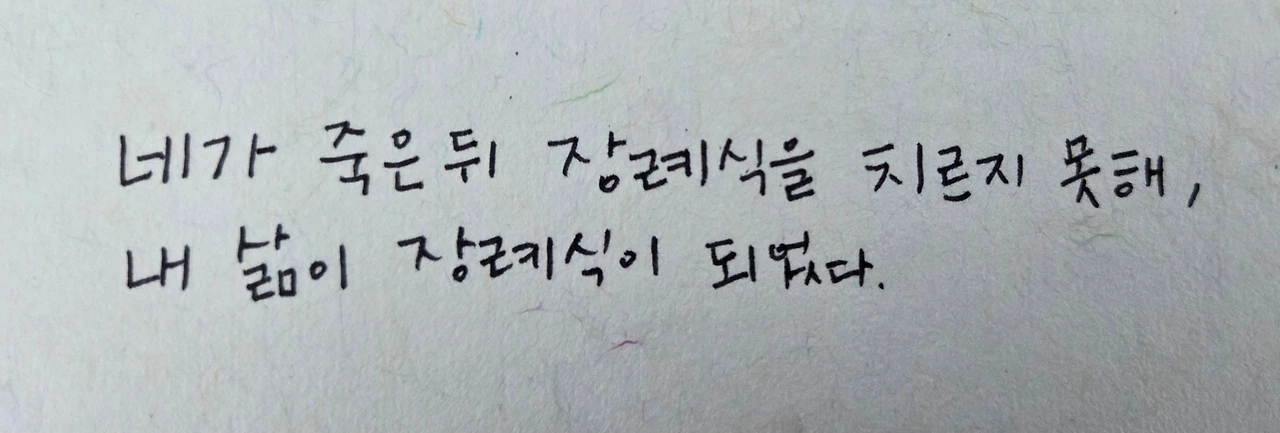 네가 죽은 뒤 장례식을 치르지 못해,
내 삶이 장례식이 되었다.